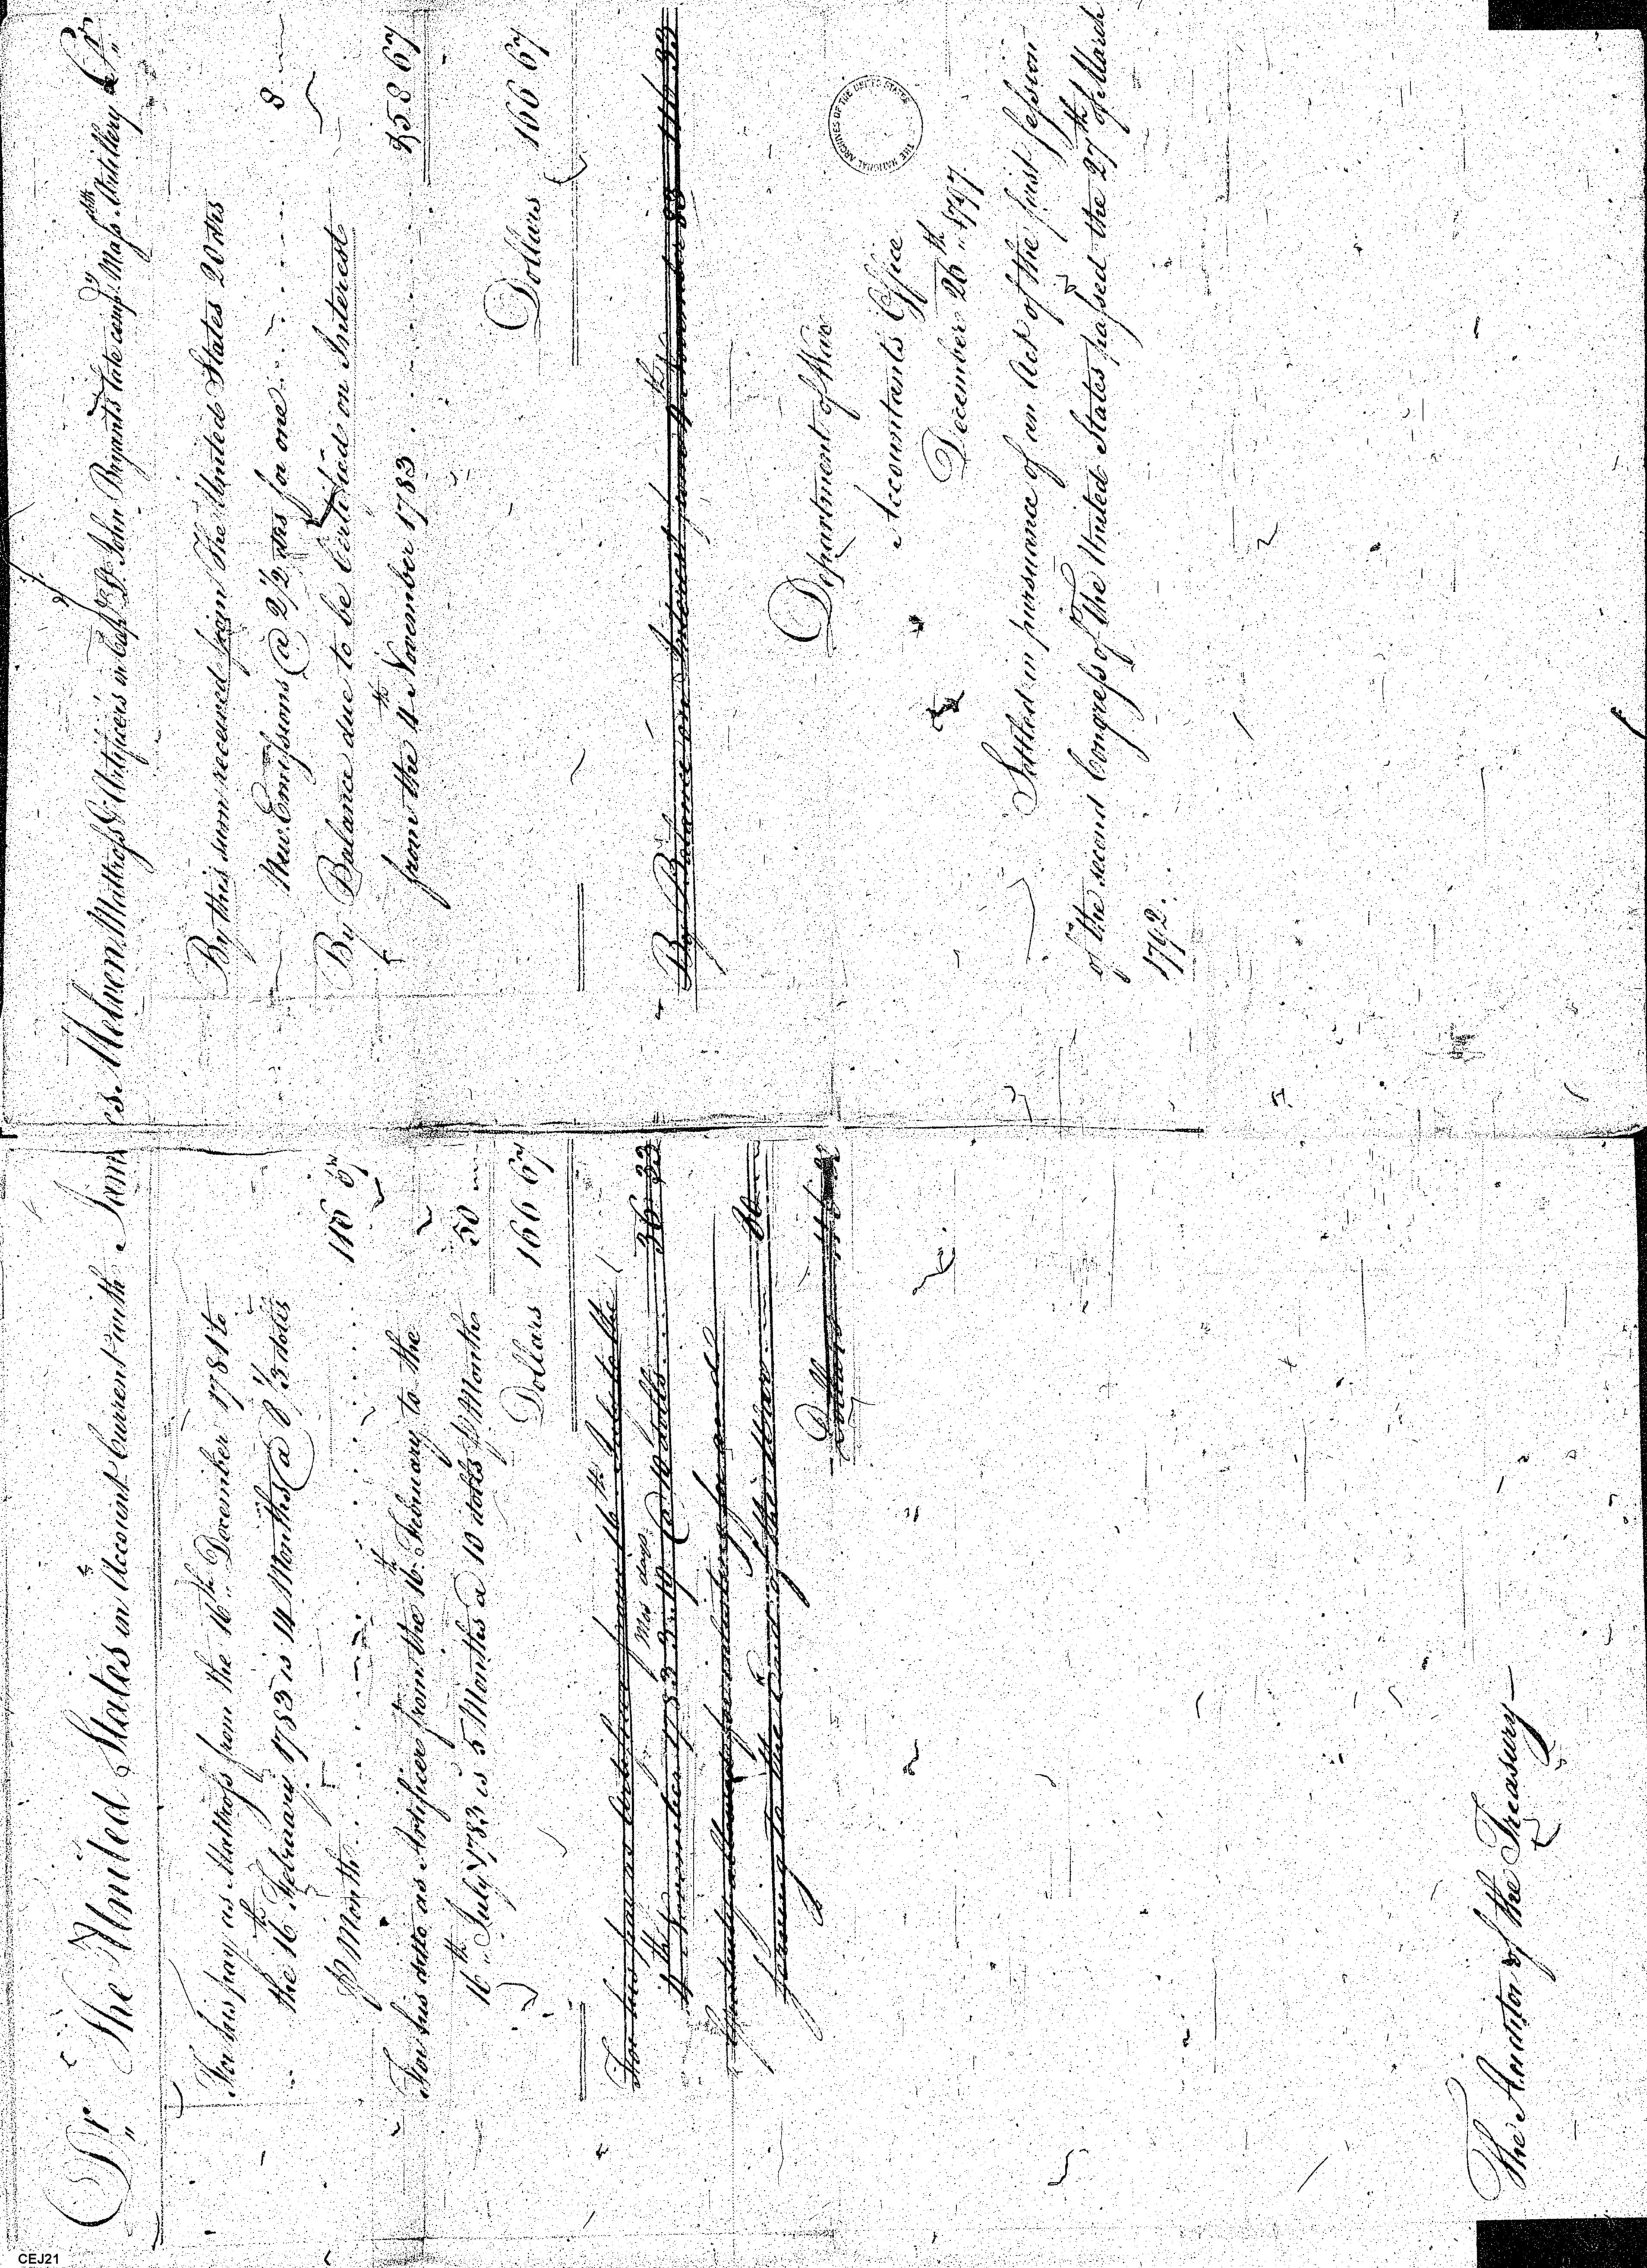 Dr The United States in Account Current with James Melven Mattross & Artificers in Capt John Bryants late comp Mass Artillery Cr
For his pay as Mattross from the 16th December 1781 to
the 16th February 1783 is 14 Months @ 8 1/3 dolls
P Month 116 67
For his ditto as Artificer from the 16th February to the
16th July 1783 is 5 Months @ 10 dolls P Month 50
Dollars 166 67
For his pay as Artificer from 16th July to the
4th November 1783 3 Mos 19 days @ 10 dolls 36 33
Gratuity allowed for enlisting for and
serving to the End of the War 80
Dollars 116 33
By this sum received from the United States 20 dlls
New Emissions @ 2 1/2 dlls for one 8
By Balance due to be Certified on Interest
from the 4th November 1783 158 67
Dollars 166 67
By Balance on Interest from 4th November 83 116 33
Department of War
Accountants Office
December 26th 1797
Settled in pursuance of an Act of the first session
of the second Congress of the United States passed the 27th of March
1792.
The Auditor of the Treasury
THE NATIONAL ARCHIVES OF THE UNITED STATES
CEJ21